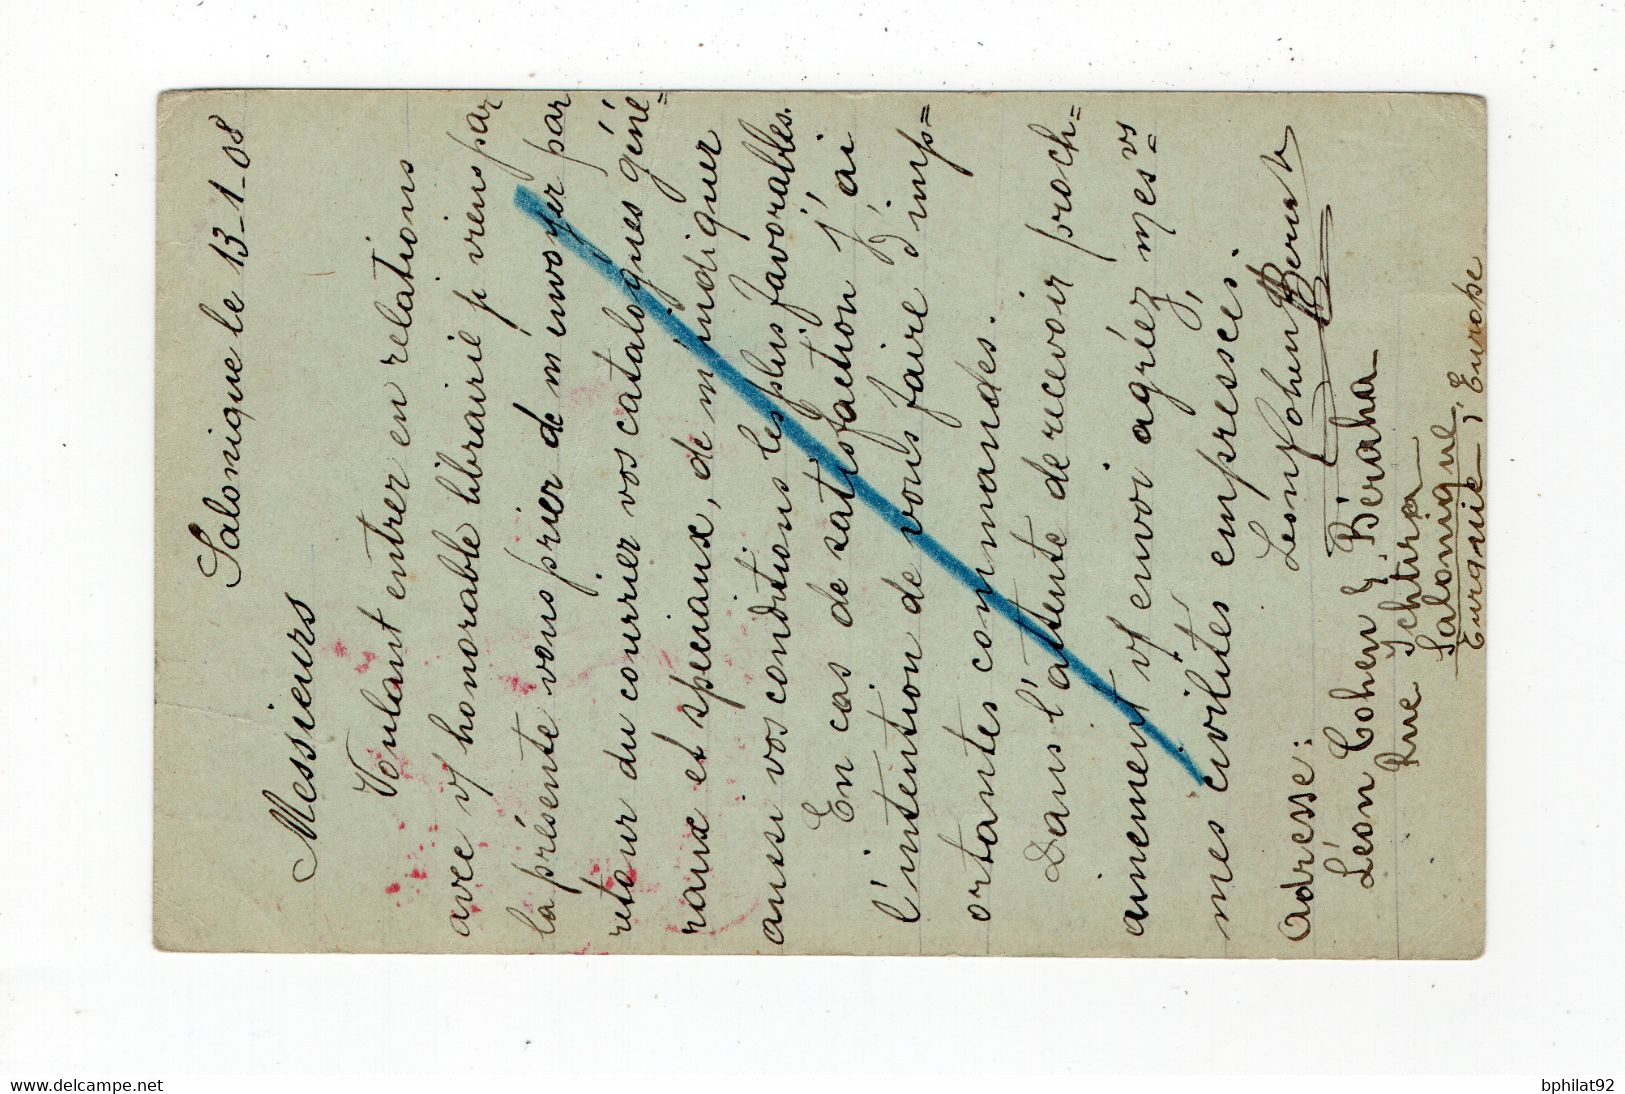 Salonique le 13-1-08
Messieurs
Voulant entrer en relations
avec v/ honorable librairie je viens par
la présente vous prier de m'envoyer par
retour du courrier vos catalogues géné=
raux et speciaux, de m'indiquer
aussi vos conditions les plus favorables.
En cas de satisfaction j'ai
l'intention de vous faire d'imp=
ortantes commandes.
Dans l'attente de recevoir proch=
ainement v/ envoi agréez, mes vs
mes civilités empressées.
Léon J Cohen Beraha
Adresse:
Léon Cohen J. Béraha
Rue Ichtira
Salonique
Turquie d'Europe
www.delcampe.net
bphilat92